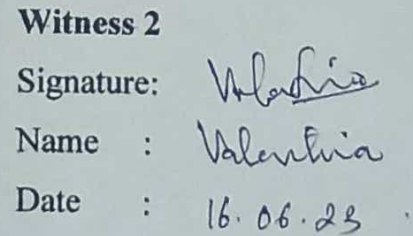 Witness 2
Signature: Valentina
Name : Valentina
Date : 16.06.23